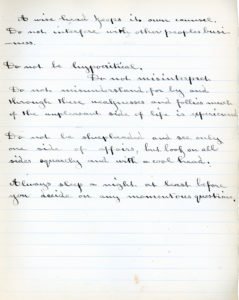 A wise head keeps its own counsel.
Do not interfere with other peoples busi-
ness.
Do not be hypocritical.
Do not misinterpret
Do not misunderstand, for by and
through these weaknesses and follies much
of the unpleasant side of life is experienced
Do not be sheepheaded and see only
one side of affairs, but look on all
sides squarely and with a cool head.
Always sleep a night, at least, before
you decide on any momentous question.